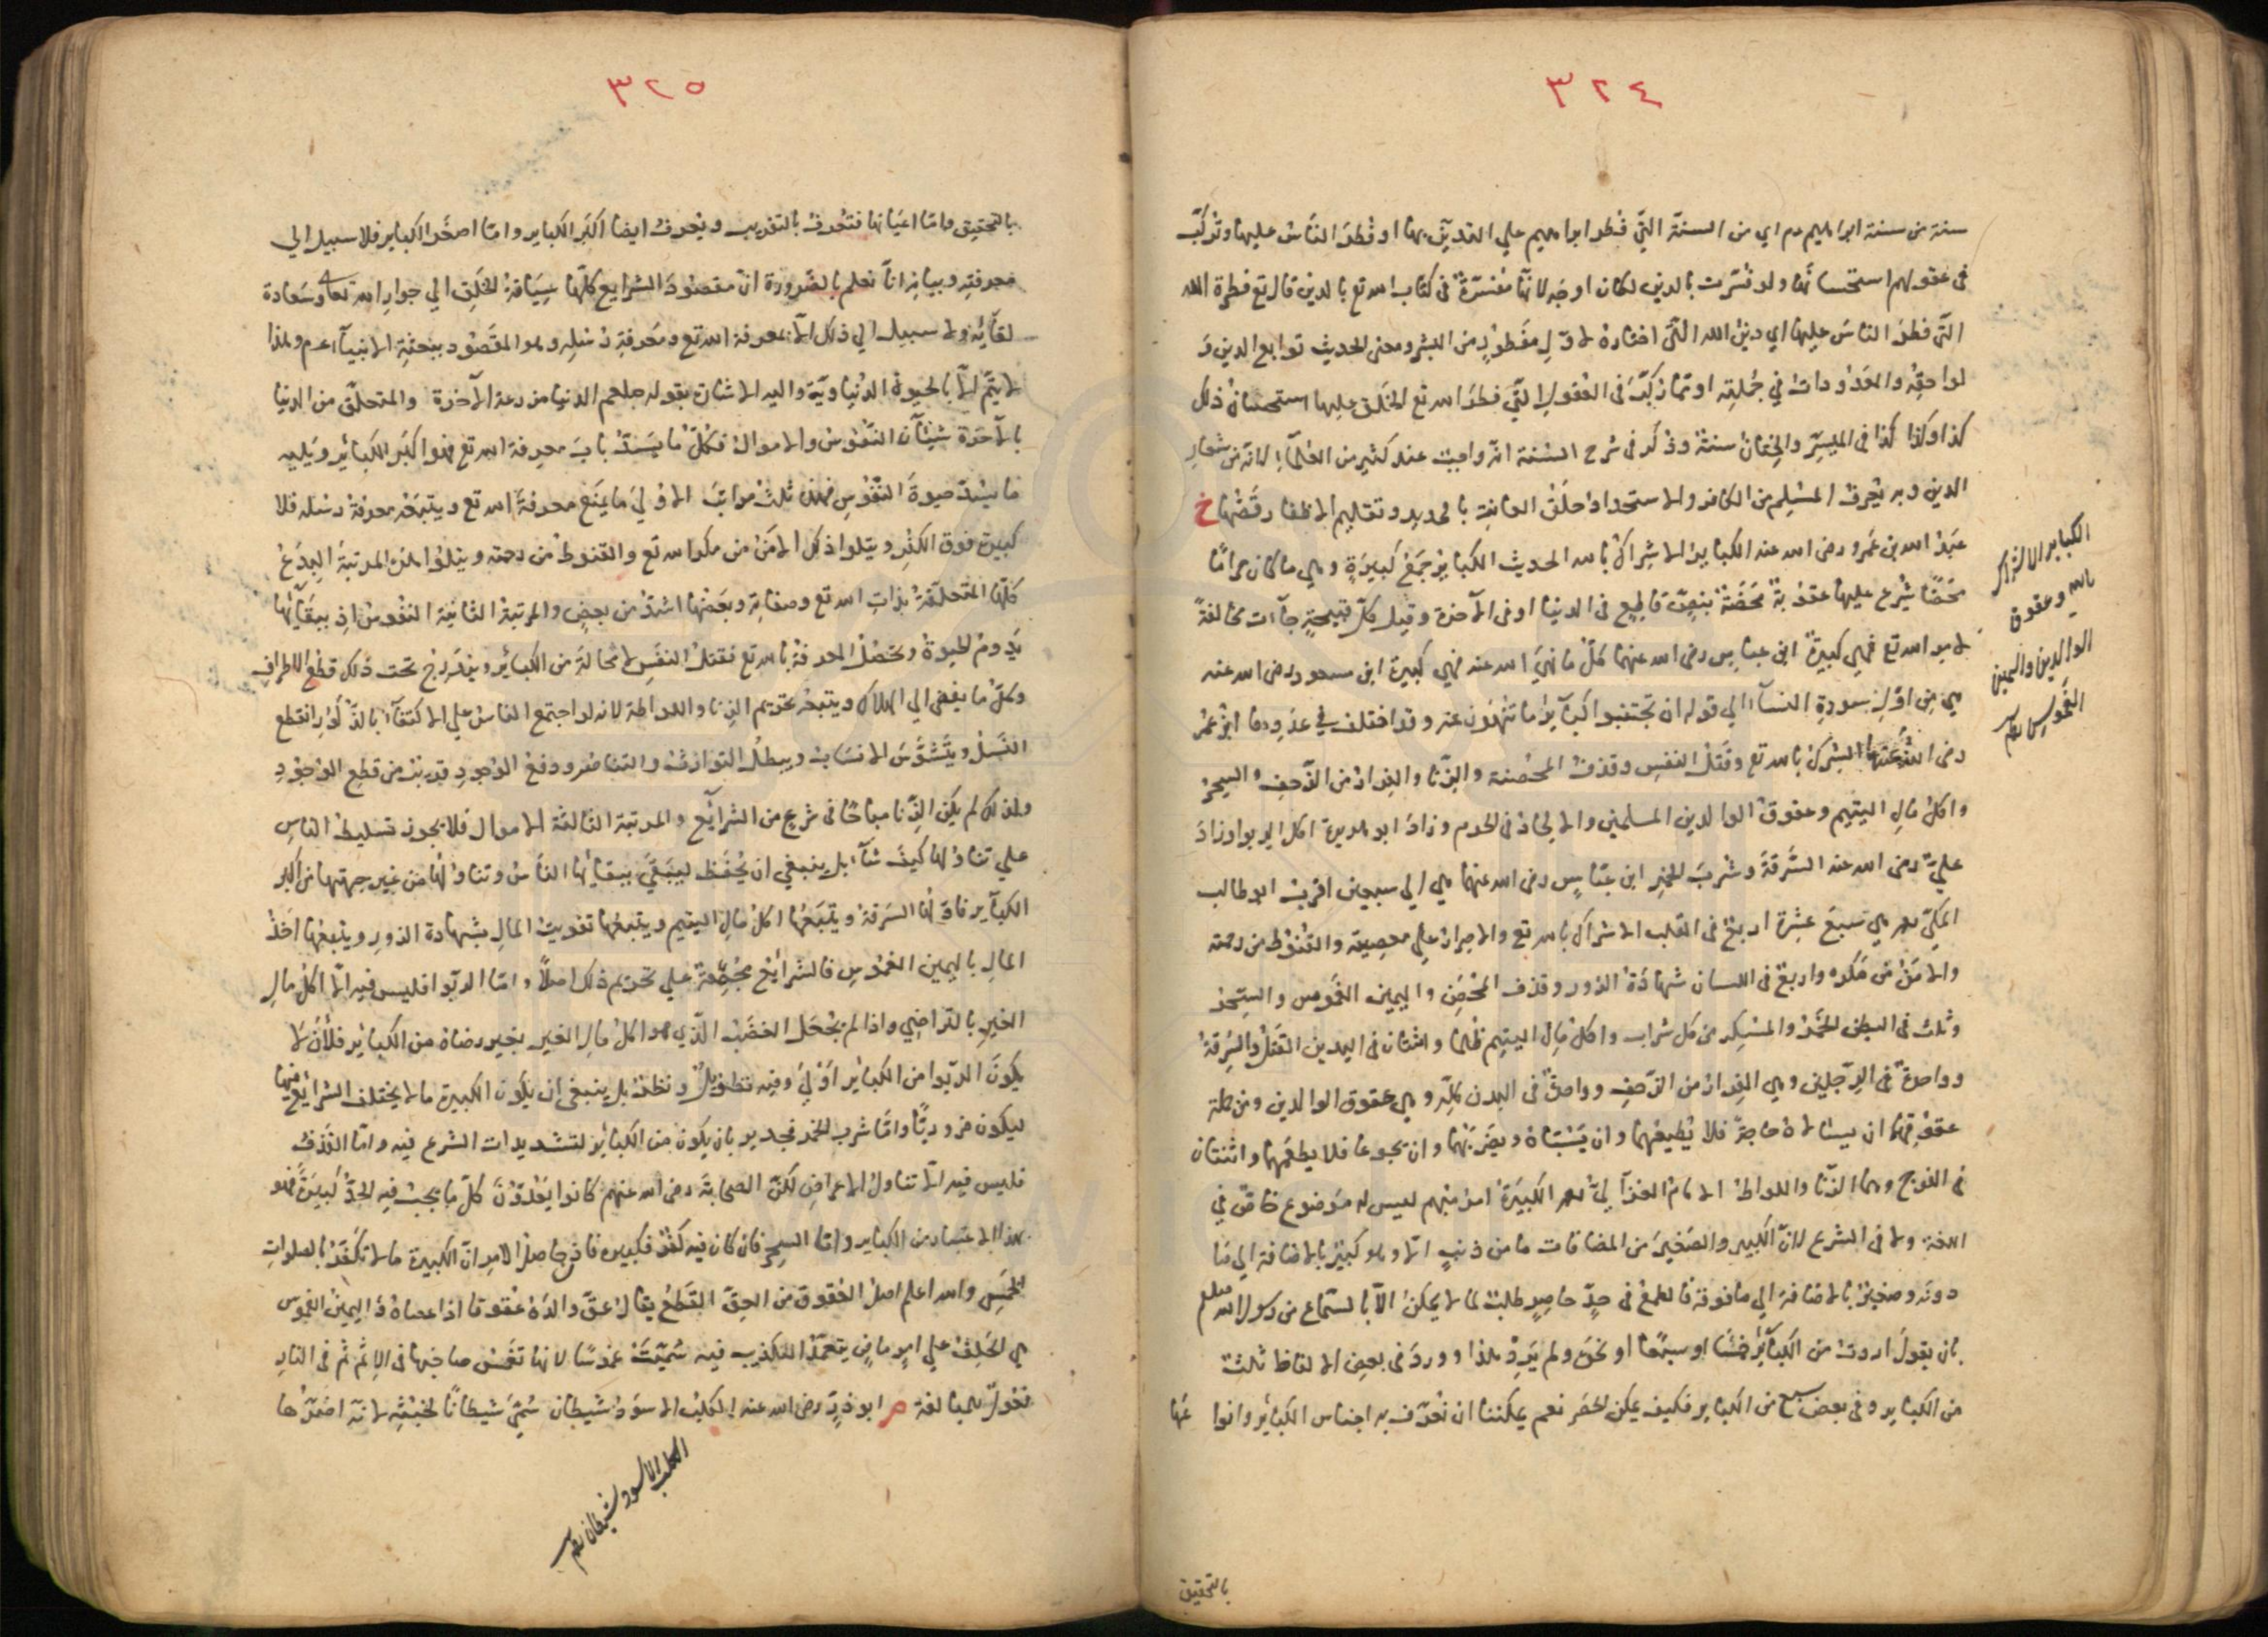 ٣٢٤
سنة من سنة ابراهيم عم اي من السنة التي فطر ابراهيم علي التديّن بها او فطر الناس عليها وتركّب
في عقولهم استحسانها ولو فسّرت بالدين لكان اوجه لانها مفسّرة في كتاب الله تع بالدين قال تع فطرة الله
التي فطر الناس عليها اي دين الله الذي اختاره لاول مفطور من البشر ومعنى الحديث توابع الدين و
لواحقه والمعدودات في جملته او تما ركّب في العقول التي فطر الله تع الخلق عليها استحسان ذلك
كذا وكذا كذا في الميسّر والختان سنة وذكر في شرح السنة انه واجب عند كثير من العلماء لانه من شعار
الدين وبه يعرف المسلم من الكافر والاستحداد حلق العانة بالحديد وتقليم الاظفار قصّها خ
عبد الله بن عمرو رضى الله عنه الكباير الاشراك بالله الحديث الكباير جمع كبيرة وهي ما كان حراما
محضا شرع عليها عقوبة محضة بنص قاطع في الدنيا او في الآخرة وقيل كل قبيحة جاءت مخالفة
لامر الله تع فهي كبيرة ابن عباس رضى الله عنهما كل ما نهى الله عنه فهي كبيرة ابن مسعود رضى الله عنه
هي من اول سورة النساء الي قوله ان تجتنبوا كباير ما تنهون عنه وقد اختلف في عدّ ابن عمر
رضى الله عنهما الشرك بالله تع وقتل النفس وقذف المحصنة والزنا والفرار من الزحف والسحر
واكل مال اليتيم وعقوق الوالدين المسلمين والالحاد في الحرم وزاد ابو هريرة اكل الربوا وزاد
عليّ رضى الله عنه السرقة وشرب الخمر ابن عباس رضى الله عنهما هي الي سبعين اقرب ابو طالب
المكّي هي سبع عشرة اربع في القلب الاشراك بالله تع والاصرار علي معصيته والقنوط من رحمته
والامن من مكره واربع في اللسان شهادة الزور وقذف المحصن واليمين الغموس والسحر
وثلث في البطن الخمر والمسكر من كل شراب واكل مال اليتيم ظلما واثنتان في اليدين القتل والسرقة
وواحدة في الرجلين وهي الفرار من الزحف وواحدة في البدن كله وهي عقوق الوالدين ومن جملة
عقوقهما ان يسئلاه حاجة فلا يطيعهما وان يسبّاه ويضربهما وان يجوعا فلا يطعمهما واثنتان
في الفرج وهما الزنا واللواط الامام الغزالي الكبيرة امر مبهم ليس له موضوع خاص في
اللغة ولا في الشرع لان الكبير والصغير من المضافات ما من ذنب الا وهو كبير بالاضافة الي ما
دونه وصغير بالاضافة الي ما فوقه فالطمع في حدّ حاصر طلب لما لا يمكن الا بالسماع من رسول الله صلعم
بان يقول اردت من الكباير خمسا او سبعا او نحوه ولم يرد هذا وورد في بعض الالفاظ ثلث
من الكباير وفي بعض سبع من الكباير فكيف يمكن الحصر نعم يمكننا ان نعرّف به اجناس الكباير وانواعها
بالتحقيق
الكباير الاشراك
بالله وعقوق
الوالدين واليمين
الغموس
٣٢٥
بالتحقيق واما اعيانها فتعرف بالتقريب ويعرف ايضا اكبر الكباير واما اصغر الكباير فلا سبيل الي
معرفته وبيانه انا نعلم بالضرورة ان مقصود الشرايع كلها سياقة الخلق الي جوار الله تعا وسعادة
لقائه ولا سبيل الي ذلك الا بمعرفة الله تع ومعرفة رسله وهو المقصود ببعثة الانبياء عم وهذا
لا يتم الا بالحيوة الدنياوية واليه الاشارة بقوله صلعم الدنيا مزرعة الآخرة والمتعلق من الدنيا
بالآخرة شيئان النفوس والاموال فكل ما يسدّ باب معرفة الله تع فهو اكبر الكبائر ويليه
ما يسدّ حيوة النفوس فهذه ثلث مراتب الاولي ما يمنع معرفة الله تع ويتبعه معرفة رسله فلا
كبيرة فوق الكفر ويتلوا ذلك الامن من مكر الله تع والقنوط من رحمته ويتلوا هذه المرتبة البدع
كلها المتعلقة بذات الله تع وصفاته وبعضها اشد من بعض والمرتبة الثانية النفوس اذ ببقائها
يدوم الحيوة وتحصل المعرفة بالله تع فقتل النفس لا محالة من الكبائر ويندرج تحت ذلك قطع الاطراف
وكل ما يفضي الي الهلاك ويتبعه تحريم الزنا واللواطة لانه لو اجتمع الناس علي الاكتفاء بالذكور انقطع
النسل ويتشوّش الانساب ويبطل التوارث والتناصر ودفع الوجود قريب من قطع الوجود
ولذلك لم يكن الزنا مباحا في شرع من الشرايع والمرتبة الثالثة الاموال فلا يجوز تسليط الناس
علي تناولها كيف شاء بل ينبغي ان يحفظ ليبقي ببقائها الناس وتناولها من غير جهتها من اكبر
الكباير فاولها السرقة ويتبعها اكل مال اليتيم ويتبعها تفويت المال بشهادة الزور ويتبعها اخذ
المال باليمين الغموس فالشرايع مجمعة علي تحريم ذلك اصلا واما الربوا فليس فيه الا اكل مال
الغير بالتراضي واذا لم يجعل الغصب الذي هو اكل مال الغير بغير رضاه من الكبائر فلان لا
يكون الربوا من الكبائر اولي وفيه تطويل ونظر بل ينبغي ان يكون الكبيرة ما لا يختلف الشرايع فيها
ليكون ضروريا واما شرب الخمر فجدير بان يكون من الكباير لتشديدات الشرع فيه واما القذف
فليس فيه الا تناول الاعراض لكن الصحابة رضى الله عنهم كانوا يعدون كل ما يجب فيه الحد كبيرة فهو
بهذا الاعتبار من الكباير واما السحر فان كان فيه كفر فكبيرة فاذن حاصل الامر ان الكبيرة ما لا تكفر بالصلوات
الخمس والله اعلم اصل العقوق من العق القطع يقال عق والده عقوقا اذا عصاه واليمين الغموس
هي الحلف علي امر ماض يتعمد الكذب فيه سميت غموسا لانها تغمس صاحبها في الاثم ثم في النار
فعول للمبالغة م ابو ذر رضى الله عنه الكلب الاسود شيطان سمي شيطانا لخبثه لانه اضرها
الكلب الاسود شيطان